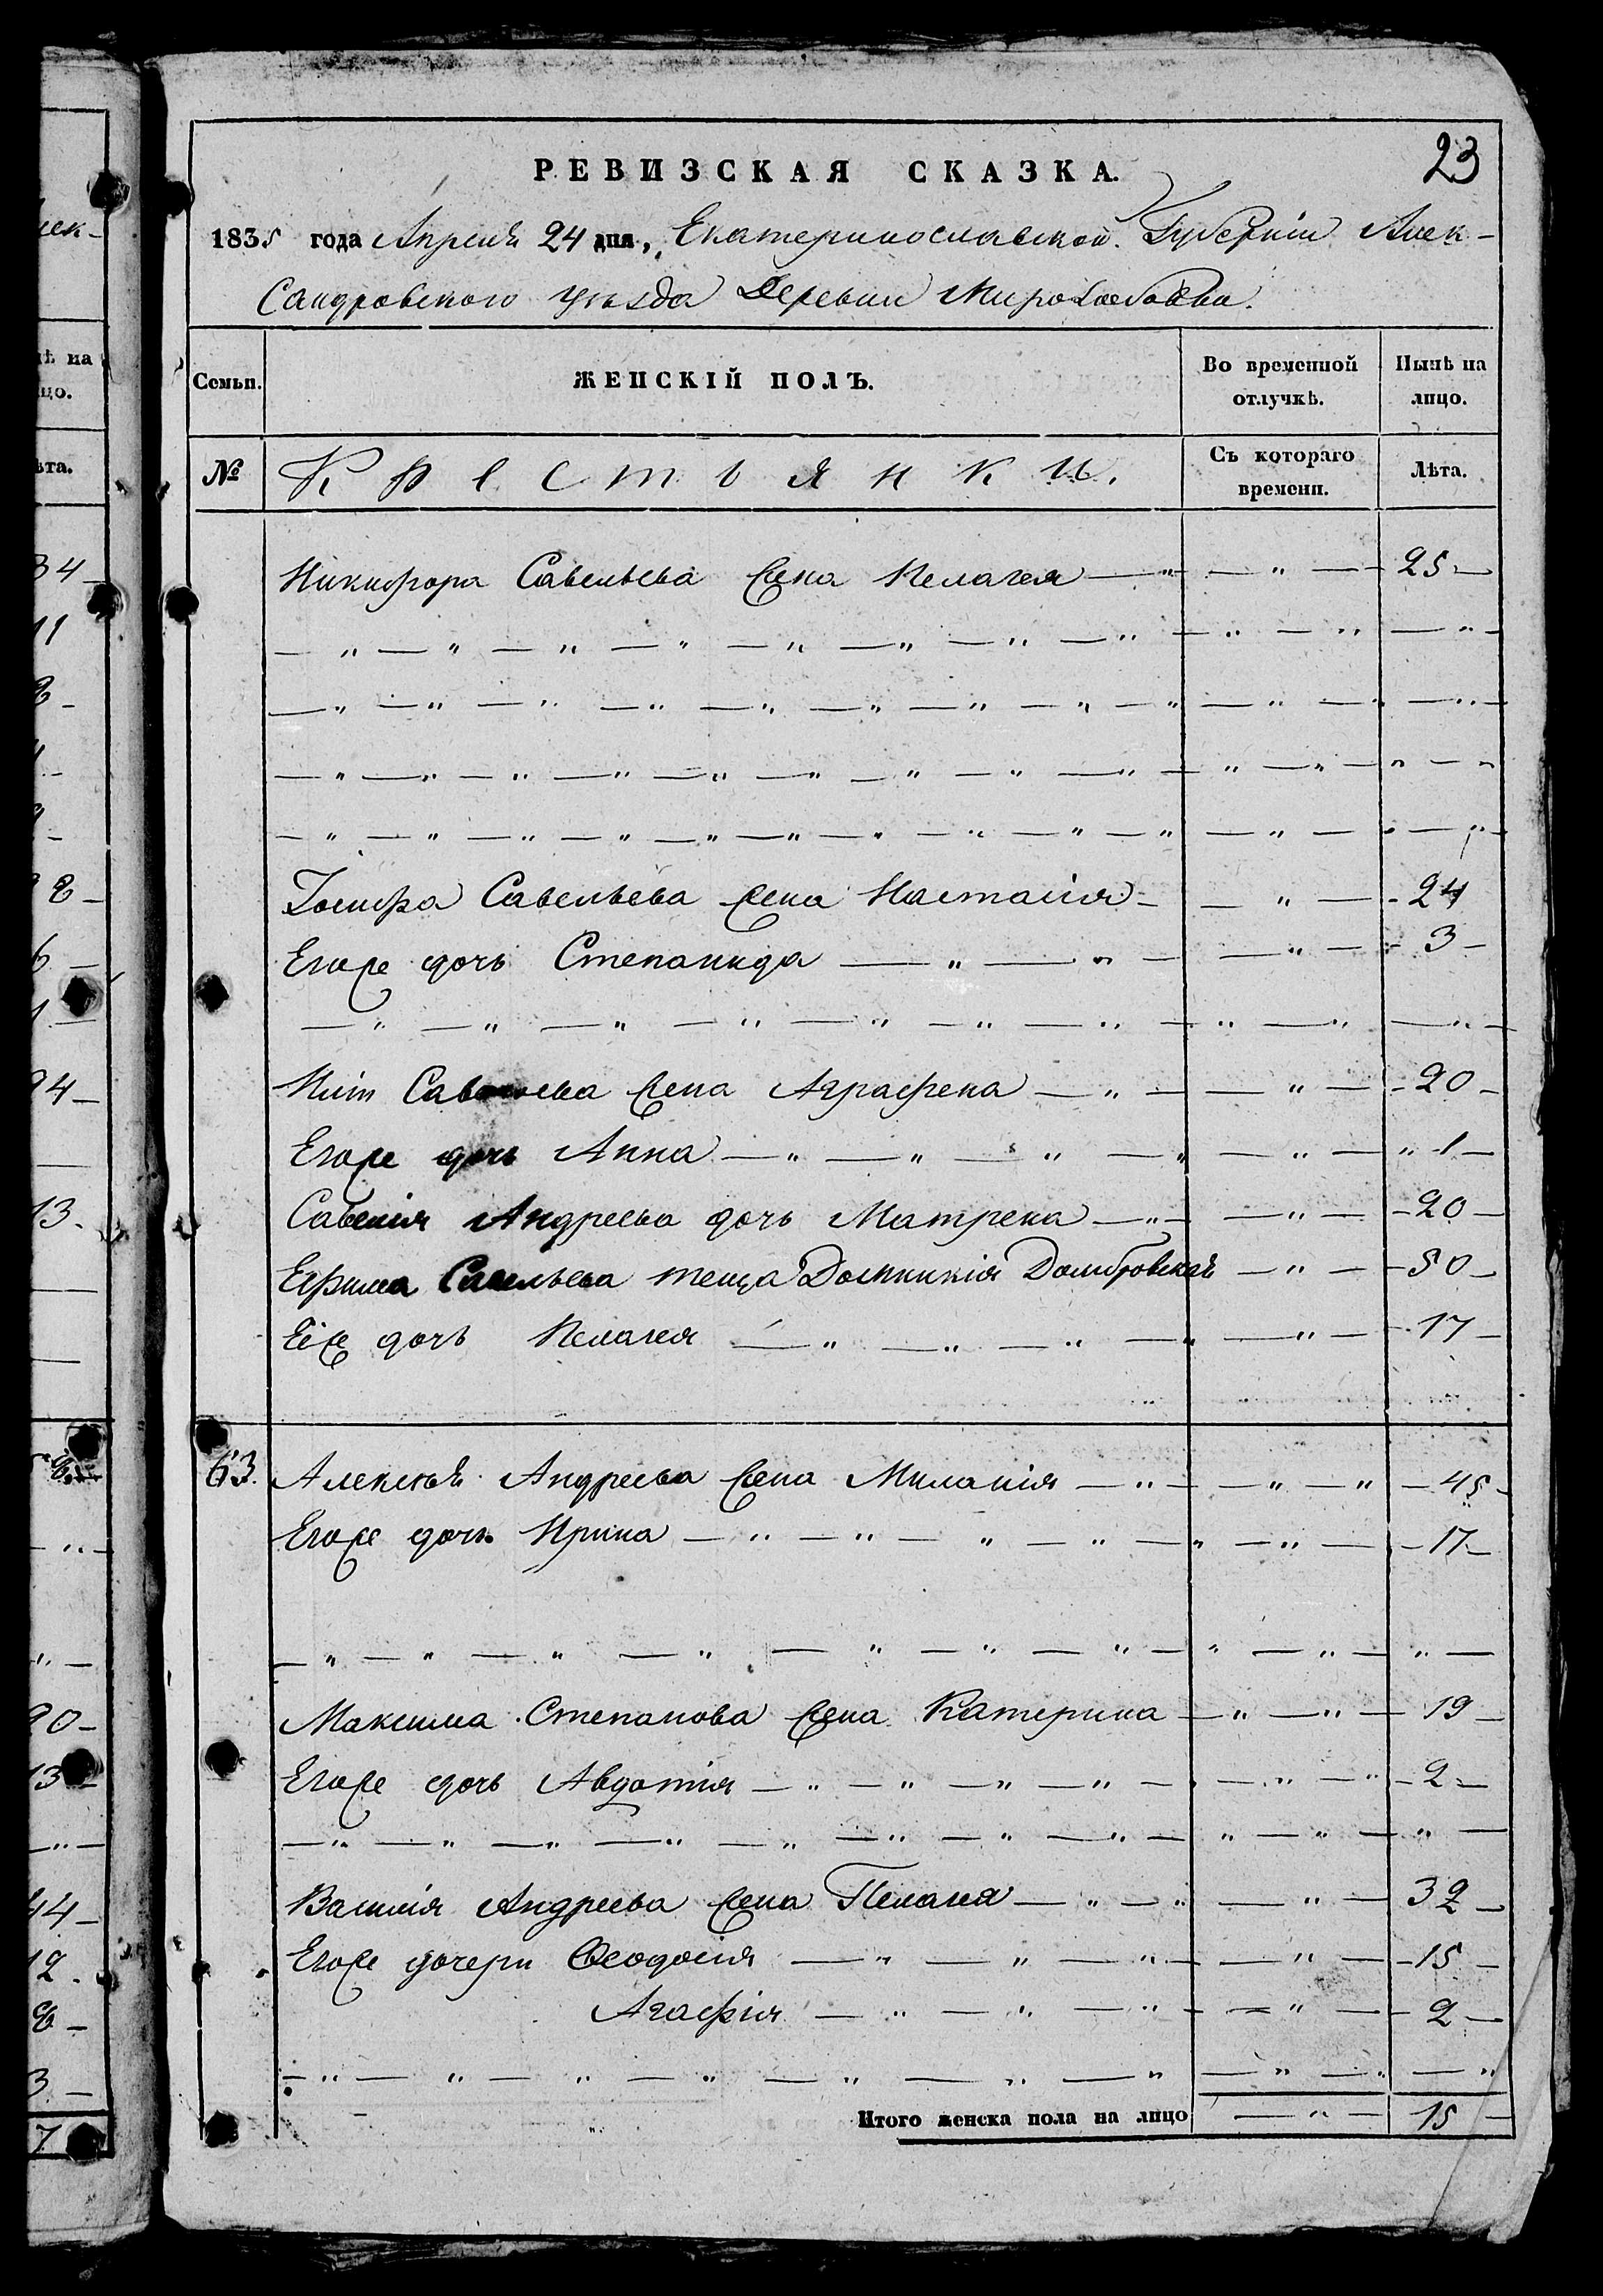 23
РЕВИЗСКАЯ СКАЗКА.
1835 года Апреля 24 дня, Екатеринославской Губерніи Алек-
сандровского уѣзда Деревни
Семьи. ЖЕНСКІЙ ПОЛЪ. Во временной отлучкѣ. Нынѣ на лицо.
№ Крестьянки. Съ котораго времени. Лѣта.
Никифора Савельева жена Пелагея — „ — „ — 25 —
— „ — „ — „ — „ — „ — „ — „ — „ — „ — „ — „ —
— „ — „ — „ — „ — „ — „ — „ — „ — „ — „ — „ —
— „ — „ — „ — „ — „ — „ — „ — „ — „ — „ — „ —
— „ — „ — „ — „ — „ — „ — „ — „ — „ — „ — „ —
Савельева жена Настасія — „ — 24
Егоже дочь Степанида — „ — „ — „ — 3 —
— „ — „ — „ — „ — „ — „ — „ — „ — „ — „ —
Савельева жена Аграфена — „ — „ — 20 —
Егоже дочь Анна — „ — „ — „ — „ — „ — „ 1 —
Савелія Андреева дочь Матрена — „ — „ — 20 —
Ефима Савельева теща Домникія Домбровская — „ — 50 —
Еіже дочь Пелагея — „ — „ — „ — „ — 17 —
63. Алексѣя Андреева жена Миланія — „ — „ — „ — 45 —
Егоже дочь Ирина — „ — „ — „ — „ — „ — „ — 17 —
— „ — „ — „ — „ — „ — „ — „ — „ — „ — „ —
Максима Степанова жена Катерина — „ — „ — 19 —
Егоже дочь Авдотия — „ — „ — „ — „ — „ — „ — 2 —
— „ — „ — „ — „ — „ — „ — „ — „ — „ — „ — „ —
Василія Андреева жена Пелагея — „ — „ — „ — 32 —
Егоже дочери Ѳеодосія — „ — „ — „ — „ — 15 —
Агафія — „ — „ — „ — „ — 2 —
— „ — „ — „ — „ — „ — „ — „ — „ — „ — „
Итого женска пола на лицо — „ — 15 —